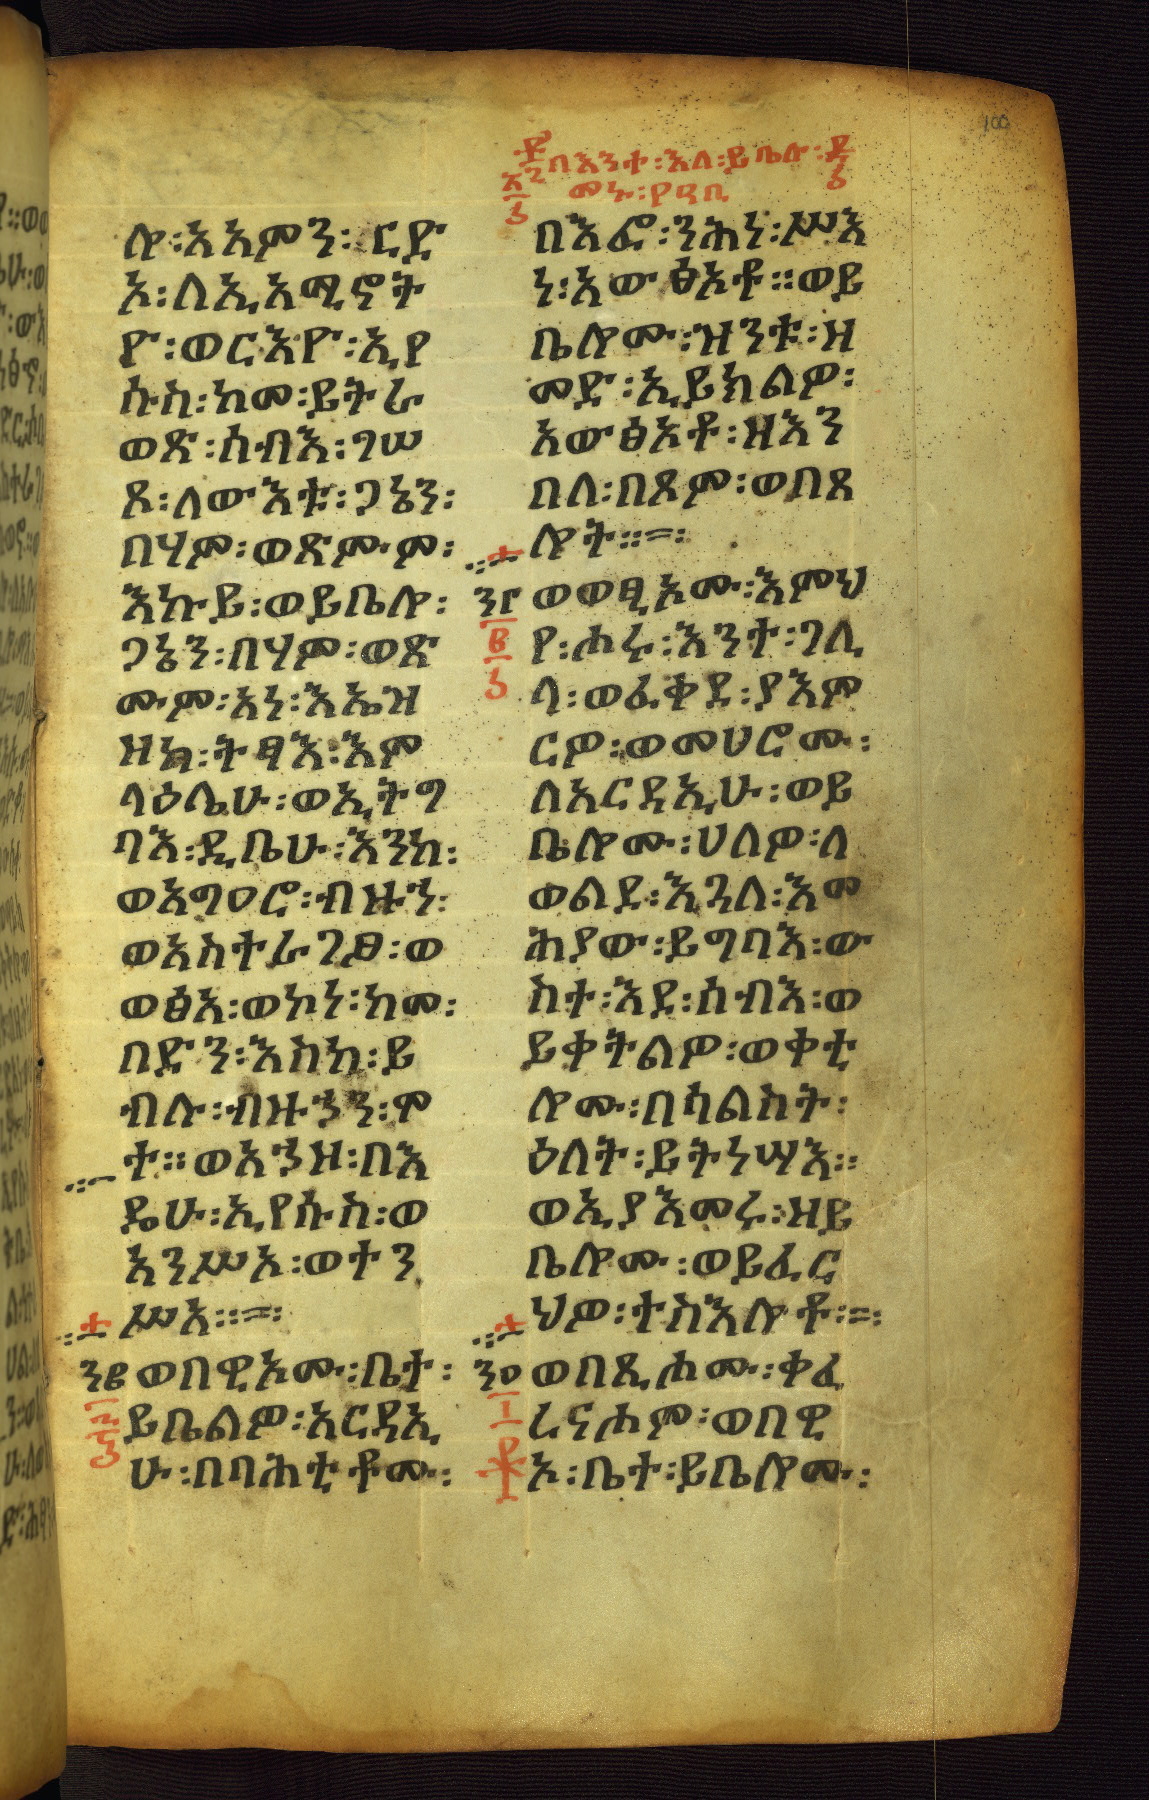 100
በእንተ፡እለ፡ይቤሉ፡
መኑ፡የዓቢ
ሎ፡አአምን፡ርድ
አ፡ለኢአሚኖት
የ፡ወርእዮ፡ኢየ
ሱስ፡ከመ፡ይትራ
ወጽ፡ሰብእ፡ገሠ
ጾ፡ለውእቱ፡ጋኔን፡
በሃም፡ወጽሙም፡
እኩይ፡ወይቤሎ፡
ጋኔን፡በሃም፡ወጽ
ሙም፡አነ፡እኤዝ
ዘከ፡ትፃእ፡እም
ላዕሌሁ፡ወኢትግ
ባእ፡ዲቤሁ፡እንከ፡
ወአግዐሮ፡ብዙኀ፡
ወአስተራገፆ፡ወ
ወፅአ፡ወኮነ፡ከመ፡
በድን፡እስከ፡ይ
ብሉ፡ብዙኃን፡ሞ
ተ፡፡ወአኀዘ፡በእ
ዴሁ፡ኢየሱስ፡ወ
አንሥኦ፡ወተን
ሥአ፡፡=፡
ወበዊኦሙ፡ቤተ፡
ይቤልዎ፡አርዳኢ
ሁ፡በባሕቲቶሙ፡
በእፎ፡ንሕነ፡ሥእ
ነ፡አውፅኦቶ፡፡ወይ
ቤሎሙ፡ዝንቱ፡ዘ
መድ፡ኢይክልዎ፡
አውፅኦቶ፡ዘእን
በለ፡በጾም፡ወበጸ
ሎት፡፡=፡
ወወፂኦሙ፡እምህ
የ፡ሐሩ፡እንተ፡ገሊ
ላ፡ወፈቀደ፡ያእም
ርዎ፡ወመሀሮሙ፡
ለአርዳኢሁ፡ወይ
ቤሎሙ፡ሀለዎ፡ለ
ወልደ፡እጓለ፡እመ
ሕያው፡ይግባእ፡ው
ስተ፡እደ፡ሰብእ፡ወ
ይቀትልዎ፡ወቀቲ
ሎሙ፡በሣልስት፡
ዕለት፡ይትነሣእ፡፡
ወኢያእመሩ፡ዘይ
ቤሎሙ፡ወይፈር
ህዎ፡ተስእሎቶ፡=፡
ወበጺሐሙ፡ቅፈ
ራናሖም፡ወበዊ
ኦ፡ቤተ፡ይቤሎሙ፡